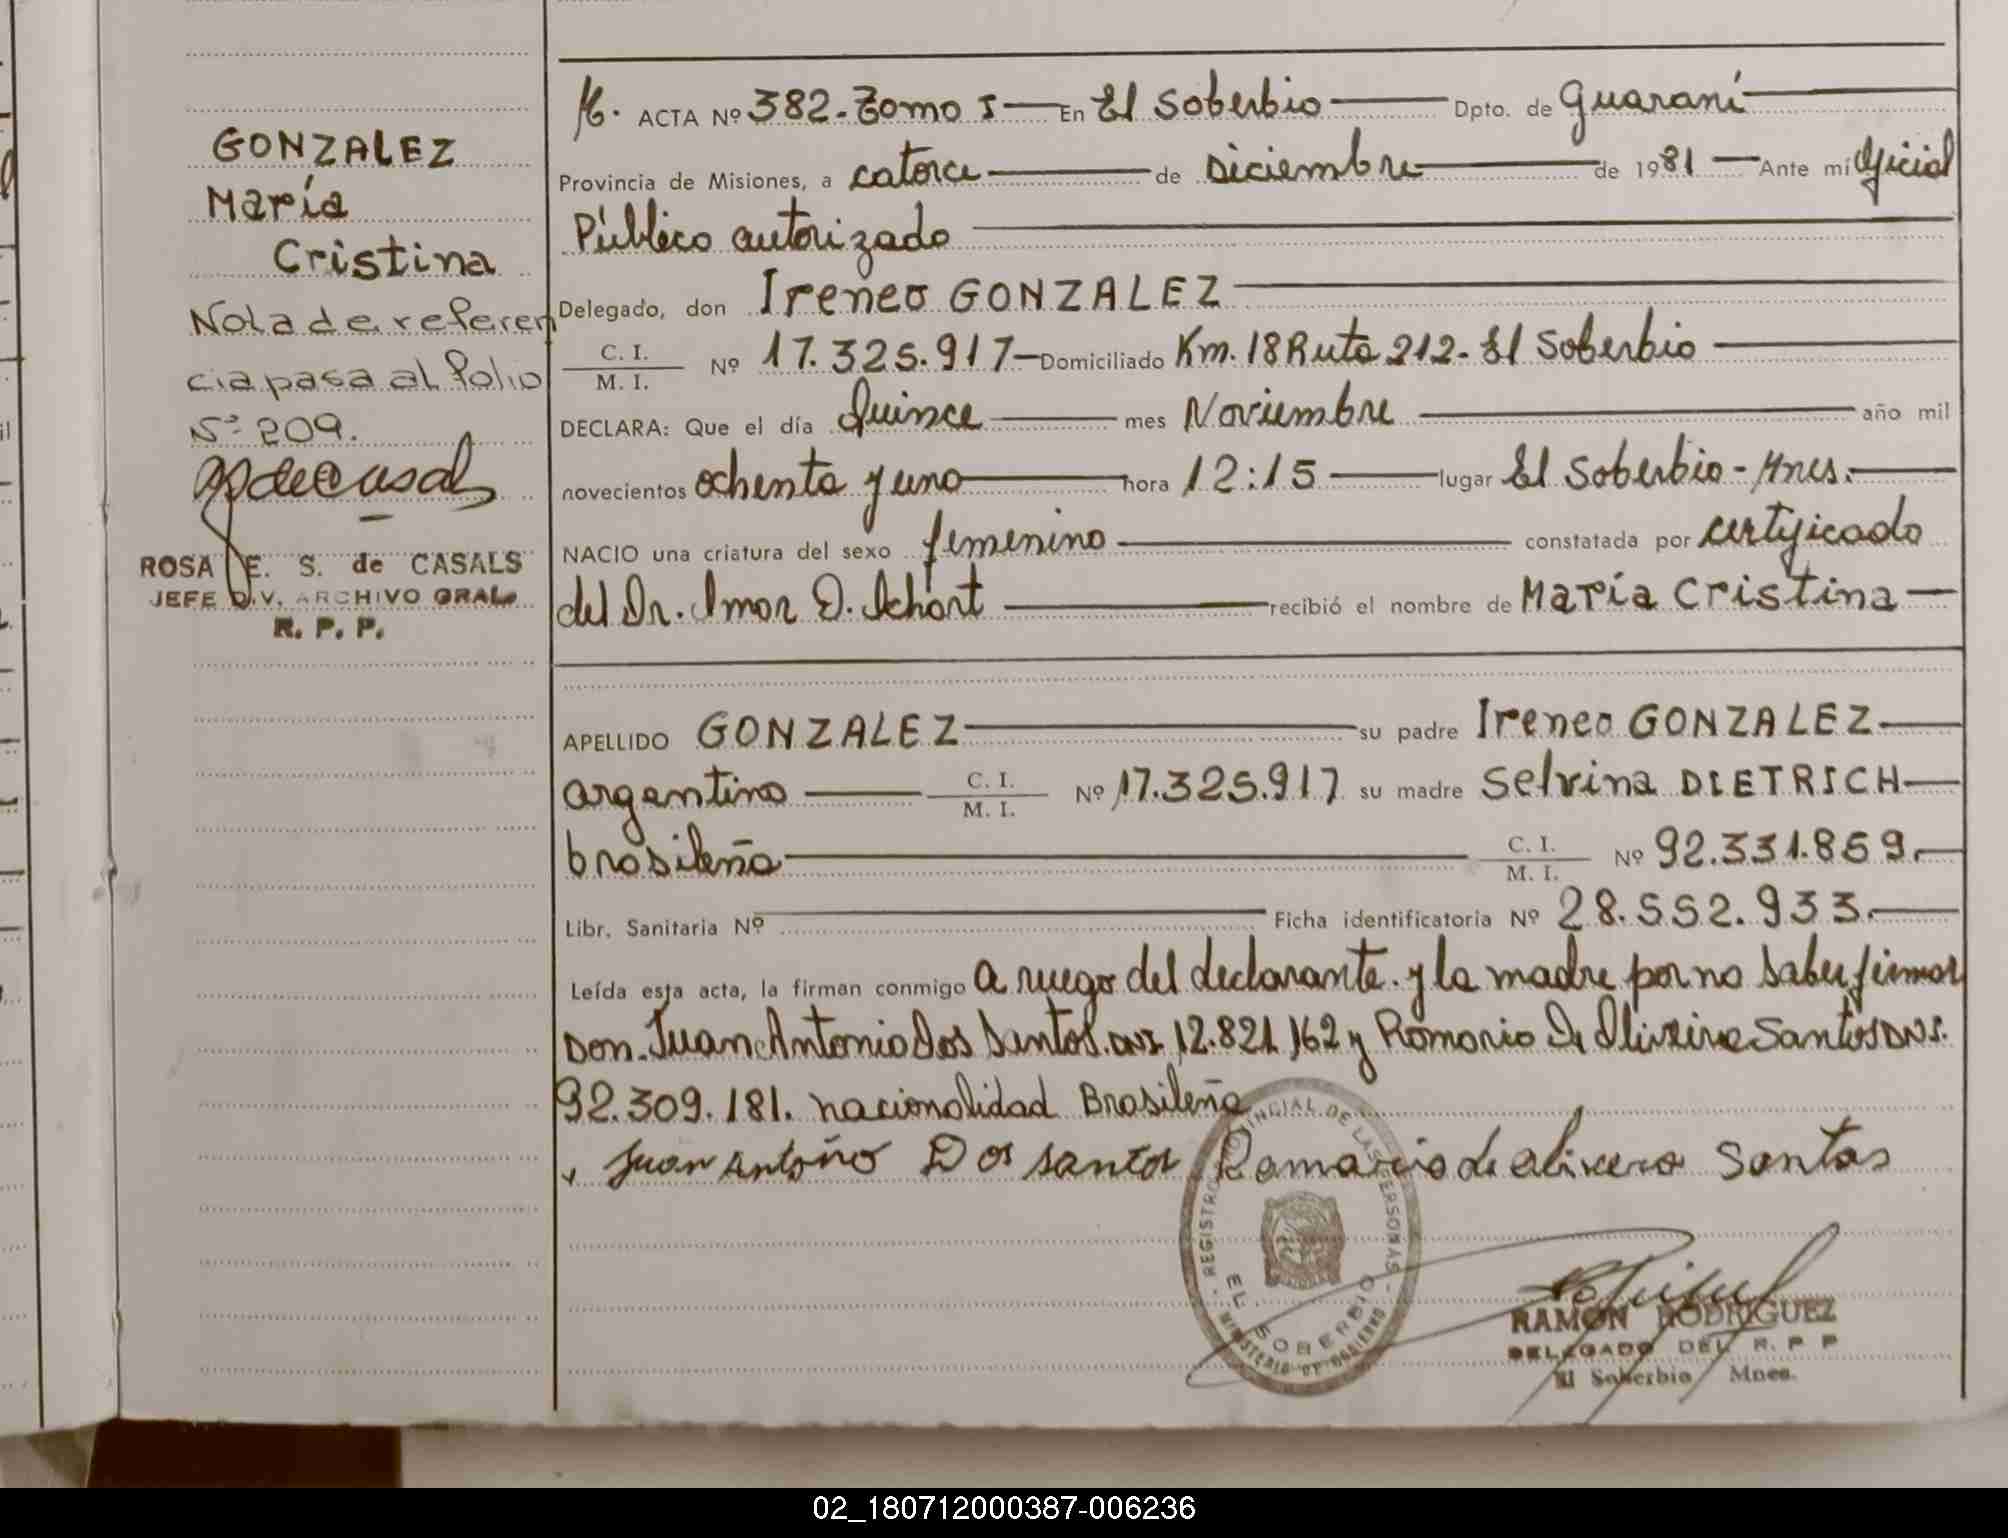 GONZALEZ
María
Cristina
Nota de referen
cia pasa al folio
Nº 209.
ROSA E. S. de CASALS
JEFE DIV. ARCHIVO GRAL.
R. P. P.
ACTA Nº 382-Tomo I — En El Soberbio — Dpto. de Guaraní
Provincia de Misiones, a catorce — de Diciembre — de 1981 — Ante mí Oficial
Público autorizado
Delegado, don Ireneo GONZALEZ
C. I. / M. I. Nº 17.325.917 — Domiciliado Km. 18 Ruta 212. El Soberbio
DECLARA: Que el día Quince — mes Noviembre — año mil
novecientos ochenta y uno — hora 12:15 — lugar El Soberbio - Mnes.
NACIO una criatura del sexo femenino — constatada por certificado
del Dr. Omar D. — recibió el nombre de María Cristina
APELLIDO GONZALEZ — su padre Ireneo GONZALEZ
argentino — C. I. / M. I. Nº 17.325.917 su madre Selvina DIETRICH
brasileña — C. I. / M. I. Nº 92.331.859.
Libr. Sanitaria Nº — Ficha identificatoria Nº 28.552.933.
Leída esta acta, la firman conmigo a ruego del declarante y la madre por no saber firmar
Don. Juan Antonio Dos Santos. DNI. 12.821.162 y Romario De Oliveira Santos DNI.
92.309.181. nacionalidad Brasileña
Juan Antoño Dos santos Romario de olivera Santos
REGISTRO PROVINCIAL DE LAS PERSONAS
EL SOBERBIO
MINISTERIO DE GOBIERNO
RAMON RODRIGUEZ
DELEGADO DEL R. P. P
El Soberbio Mnes.
02_180712000387-006236